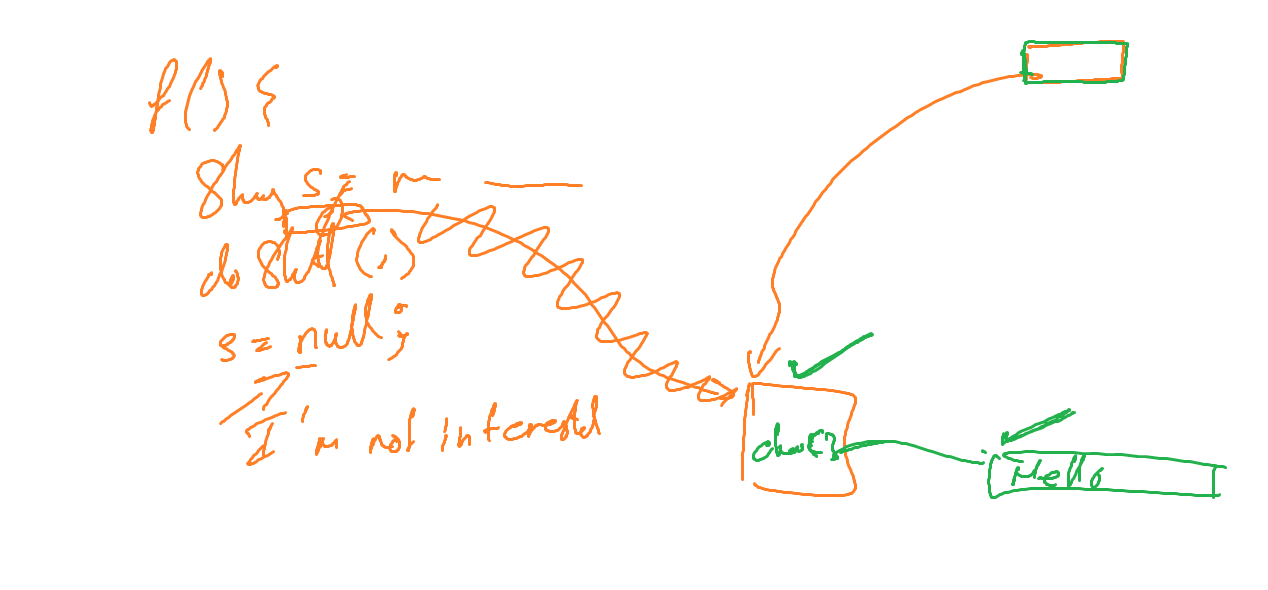 f() {
String s = new
do Stuff();
s = null;
I'm not interested
char[]
Hello